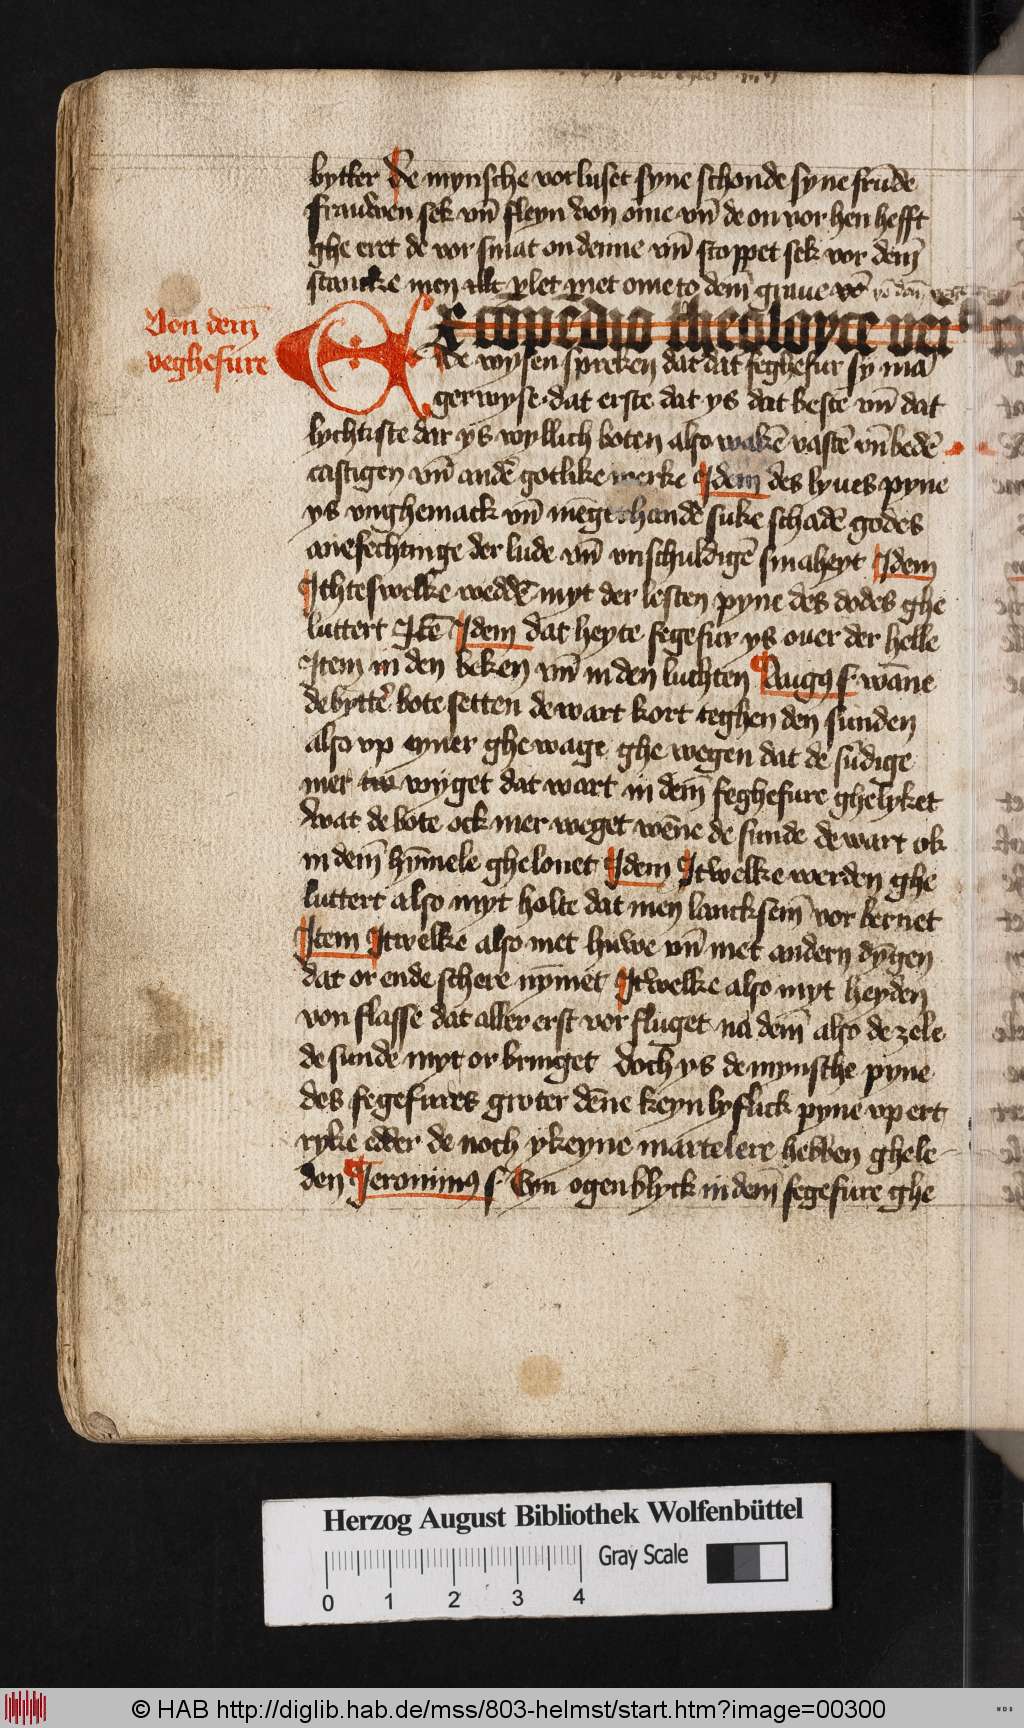 bytter De mynsche vorluset syne schonde syne frūde
frauwen sek vn̄ fleyn von ome vn̄ de on vor hen hefft
ghe eret de vor smat on denne vn̄ stoppet sek vor dem̄
stancke men met ome to dem̄ graue
Von dem̄
veghefure
Ex copēdio theoloyce vei
De wysen spreken dat dat feghefur sy mā
gerwyse dat erste dat ys dat beste vn̄ dat
lychtiste dar ys wyllich boten also wakē vastē vn̄ bedē
castigen vn̄ andē gotlike werke Idem̄ des lyues pyne
ys vnghemack vn̄ mēgerhandē suke schadē godes
anefechtinge der lude vn̄ vnschuldigē smaheyt Idem
Ichteswelke weddē myt der lesten pyne des dodes ghe
luttert Itē Idem dat heyte fegefur ys ouer der helle
Item in den beken vn̄ in den luchten Augꝯ s wāne
de bytte bote setten de wart kort teghen den sunden
also vp eyner ghe wage ghe wegen dat de sūdige
mer wyget dat wart in dem̄ feghefure ghelyket
wat de bote ock mer weget wēne de sunde de wart ok
in dem̄ hȳmele ghelonet Idem Itwelke werden ghe
luttert also myt holte dat men lancksem̄ vor bernet
Item Itwelke also met huwe vn̄ met andern dȳgen
dat or ende schere nym̄et Itwelke also myt heyden
von flasse dat aller erst vor fluget na dem̄ also de zele
de sunde myt or bringet doch ys de mynsche pyne
des fegefures groter dēne keyn lyflick pyne vp ert
ryke edder de noch ykeyne martelere hebben ghele
den Jeronimꝯ s Eyn ogenblyck in dem̄ fegefure ghe
Herzog August Bibliothek Wolfenbüttel
Gray Scale
0 1 2 3 4
© HAB http://diglib.hab.de/mss/803-helmst/start.htm?image=00300